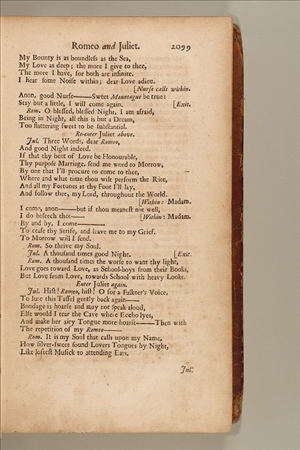 Romeo and Juliet. 2099
My Bounty is as boundless as the Sea,
My Love as deep; the more I give to thee,
The more I have, for both are infinite.
I hear some Noise within; dear Love adieu.
[Nurse calls within.
Anon, good Nurse——Sweet Mountague be true:
Stay but a little, I will come again. [Exit.
Rom. O blessed, blessed Night, I am afraid,
Being in Night, all this is but a Dream,
Too flattering sweet to be substantial.
Re-enter Juliet above.
Jul. Three Words, dear Romeo,
And good Night indeed.
If that thy bent of Love be Honourable,
Thy purpose Marriage, send me word to Morrow,
By one that I'll procure to come to thee,
Where and what time thou wilt perform the Rite,
And all my Fortunes at thy Foot I'll lay,
And follow thee, my Lord, throughout the World.
[Within: Madam.
I come, anon——but if thou meanest not well,
I do beseech thee—— [Within: Madam.
By and by, I come——
To cease thy Strife, and leave me to my Grief.
To Morrow will I send.
Rom. So thrive my Soul.
Jul. A thousand times good Night. [Exit.
Rom. A thousand times the worse to want thy light,
Love goes toward Love, as School-boys from their Books,
But Love from Love, towards School with heavy Looks.
Enter Juliet again.
Jul. Hist! Romeo, hist! O for a Falkner's Voice,
To lure this Tassel gently back again——
Bondage is hoarse and may not speak aloud,
Else would I tear the Cave where Eccho lyes,
And make her airy Tongue more hoarse——Then with
The repetition of my Romeo——
Rom. It is my Soul that calls upon my Name,
How silver-sweet sound Lovers Tongues by Night,
Like softest Musick to attending Ears.
Jul.